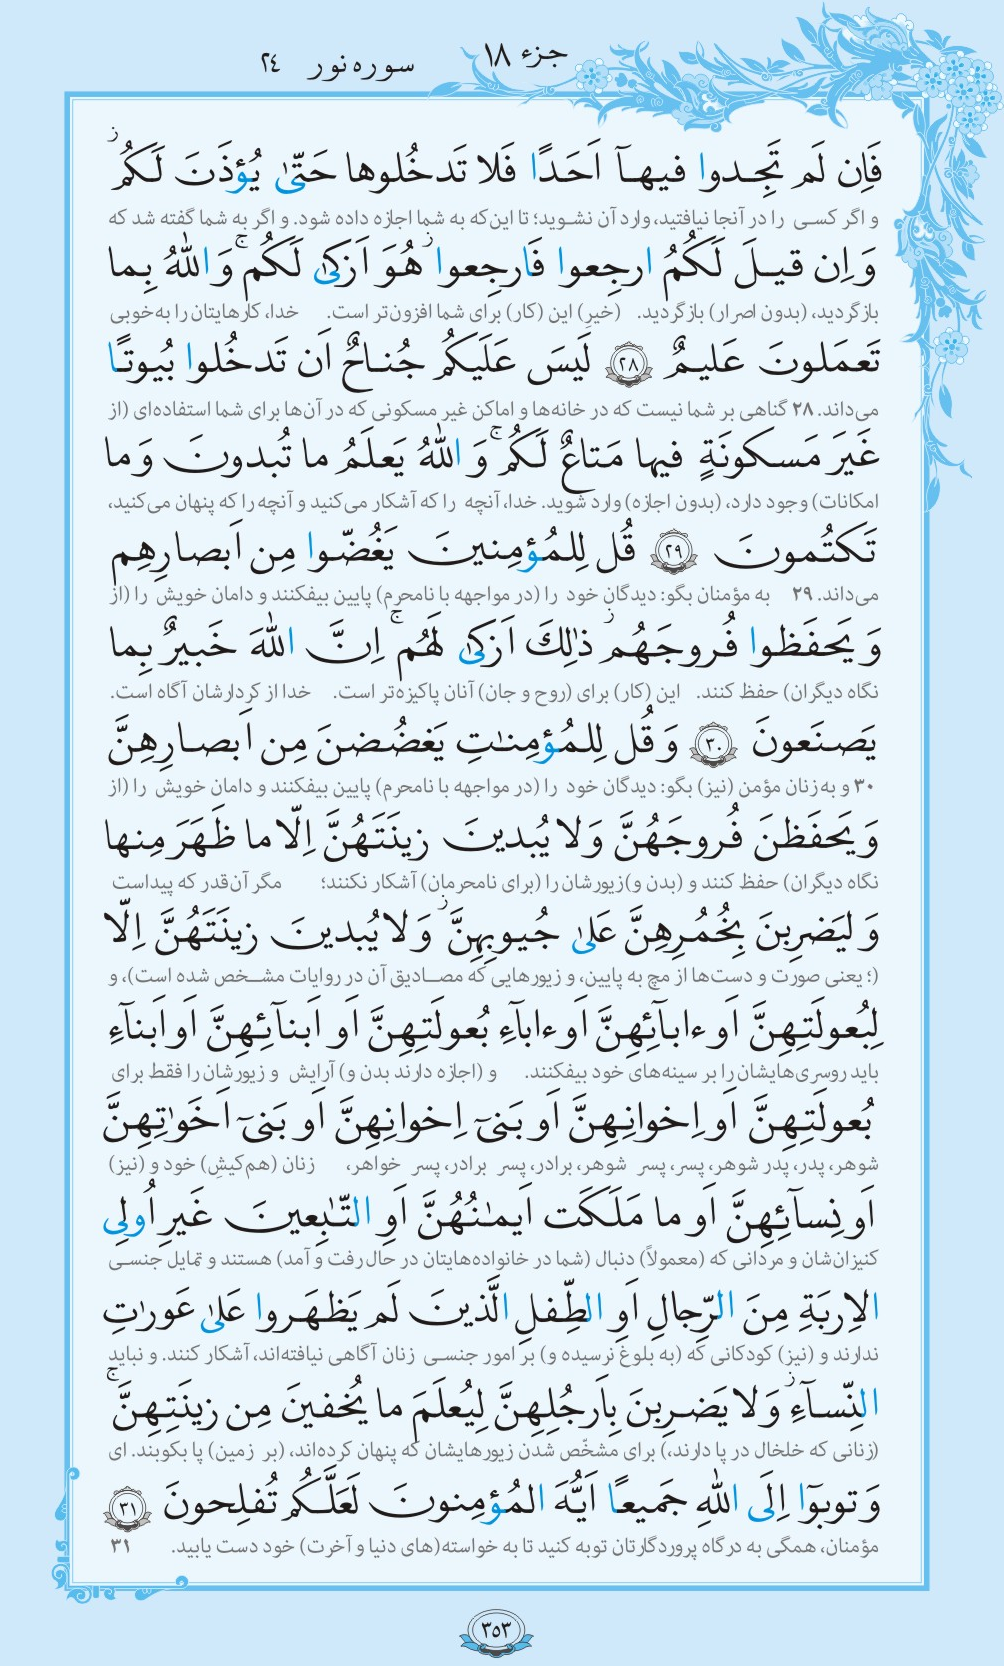 جزء ۱۸
سوره نور ۲۴
فَاِن لَم تَجِـدوا فيهـآ اَحَدًا فَلا تَدخُلوها حَتّىٰ يُؤذَنَ لَكُمۖ
و اگر کسی را در آنجا نیافتید، وارد آن نشوید؛ تا این‌که به شما اجازه داده شود. و اگر به شما گفته شد که
وَ اِن قيـلَ لَكُمُ ارجِعوا فَارجِعواۖ هُوَ اَزكىٰ لَكُمۚ وَ اللّٰهُ بِـما
بازگردید، (بدون اصرار) بازگردید. (خیر) این (کار) برای شما افزون‌تر است. خدا، کارهایتان را به‌خوبی
تَعمَلونَ عَليـمٌ ﴿۲۸﴾ لَيسَ عَلَيكُم جُنـاحٌ اَن تَدخُلوا بُيوتًـا
می‌داند. ۲۸ گناهی بر شما نیست که در خانه‌ها و اماکن غیر مسکونی که در آن‌ها برای شما استفاده‌ای (از
غَيرَ مَسكونَةٍ فيها مَتاعٌ لَكُمۚ وَ اللّٰهُ يَعلَمُ ما تُبدونَ وَ ما
امکانات) وجود دارد، (بدون اجازه) وارد شوید. خدا، آنچه را که آشکار می‌کنید و آنچه را که پنهان می‌کنید،
تَكتُمونَ ﴿۲۹﴾ قُل لِلمُؤمِنينَ يَغُضّـوا مِن اَبصارِهِم
می‌داند. ۲۹ به مؤمنان بگو: دیدگان خود را (در مواجهه با نامحرم) پایین بیفکنند و دامان خویش را (از
وَ يَحفَظـوا فُروجَهُمۚ ذٰلِكَ اَزكىٰ لَهُمۚ اِنَّ اللّٰهَ خَبيرٌ بِما
نگاه دیگران) حفظ کنند. این (کار) برای (روح و جان) آنان پاکیزه‌تر است. خدا از کردارشان آگاه است.
يَصنَعونَ ﴿۳۰﴾ وَ قُل لِلمُؤمِنـٰتِ يَغضُضنَ مِن اَبصـارِهِنَّ
۳۰ و به زنان مؤمن (نیز) بگو: دیدگان خود را (در مواجهه با نامحرم) پایین بیفکنند و دامان خویش را (از
وَ يَحفَظنَ فُروجَهُنَّ وَ لا يُبدينَ زينَتَهُنَّ اِلّا ما ظَهَرَ مِنها
نگاه دیگران) حفظ کنند و (بدن و) زیورشان را (برای نامحرمان) آشکار نکنند؛ مگر آن‌قدر که پیداست
وَ ليَضرِبنَ بِخُمُرِهِنَّ عَلىٰ جُيوبِهِنَّۖ وَ لا يُبدينَ زينَتَهُنَّ اِلّا
(؛ یعنی صورت و دست‌ها از مچ به پایین، و زیورهایی که مصـادیق آن در روایات مشـخص شده است)، و
لِبُعولَتِهِنَّ اَو ءابآئِهِنَّ اَو ءابآءِ بُعولَتِهِنَّ اَو اَبنآئِهِنَّ اَو اَبنآءِ
باید روسری‌هایشان را بر سینه‌های خود بیفکنند. و (اجازه دارند بدن و) آرایش و زیورشان را فقط برای
بُعولَتِهِنَّ اَو اِخوانِهِنَّ اَو بَنىٓ اِخوانِهِنَّ اَو بَنىٓ اَخَوٰتِهِنَّ
شوهر، پدر، پدر شوهر، پسر، پسر شوهر، برادر، پسر برادر، پسر خواهر، زنان (هم‌کیشِ) خود و (نیز)
اَو نِسآئِهِنَّ اَو ما مَلَكَت اَيمـٰنُهُنَّ اَوِ التّـٰبِعينَ غَيرِ اُولِى
کنیزان‌شان و مردانی که (معمولاً) دنبال (شما در خانواده‌هایتان در حال رفت و آمد) هستند و تمایل جنسـی
الاِربَةِ مِنَ الرِّجالِ اَوِ الطِّفلِ الَّذينَ لَم يَظهَـروا عَلىٰ عَورٰتِ
ندارند و (نیز) کودکانی که (به بلوغ نرسیده و) بر امور جنسـی زنان آگاهی نیافته‌اند، آشکار کنند. و نباید
النِّسـآءِۖ وَ لا يَضـرِبنَ بِاَرجُلِهِنَّ لِيُعلَمَ ما يُخفينَ مِن زينَتِهِنَّۚ
(زنانی که خلخال در پا دارند،) برای مشخّص شدن زیورهایشان که پنهان کرده‌اند، (بر زمین) پا بکوبند. ای
وَ توبوٓا اِلَى اللّٰهِ جَميعـًا اَيُّهَ المُؤمِنونَ لَعَلَّكُم تُفلِحونَ ﴿۳۱﴾
مؤمنان، همگی به درگاه پروردگارتان توبه کنید تا به خواسته(های دنیا و آخرت) خود دست یابید. ۳۱
۳۵۳